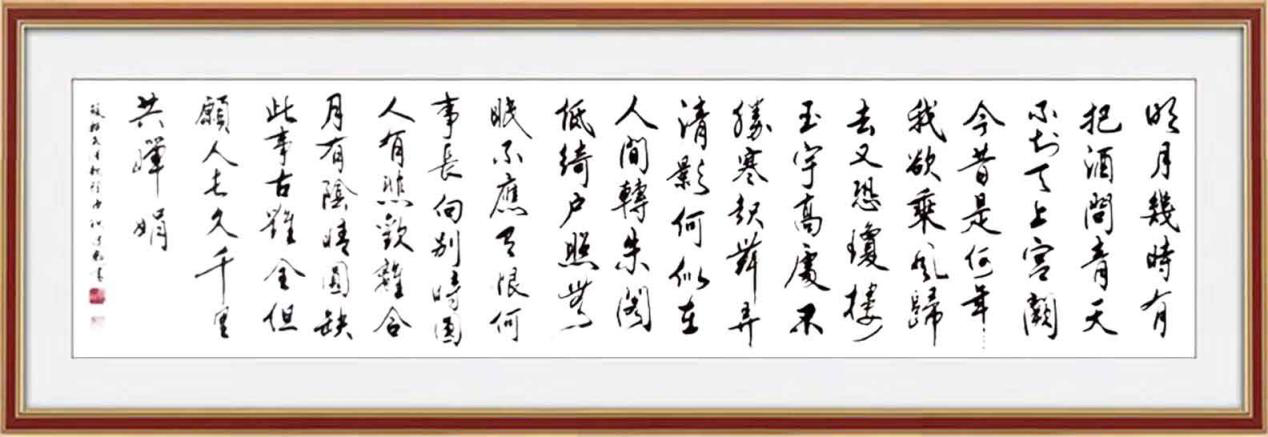 明月幾時有
把酒問青天
不知天上宮闕
今昔是何年
我欲乘風歸
去又恐瓊樓
玉宇高處不
勝寒起舞弄
清影何似在
人間轉朱閣
低綺戶照無
眠不應有恨何
事長向別時圓
人有悲歡離合
月有陰晴圓缺
此事古難全但
願人長久千里
共嬋娟